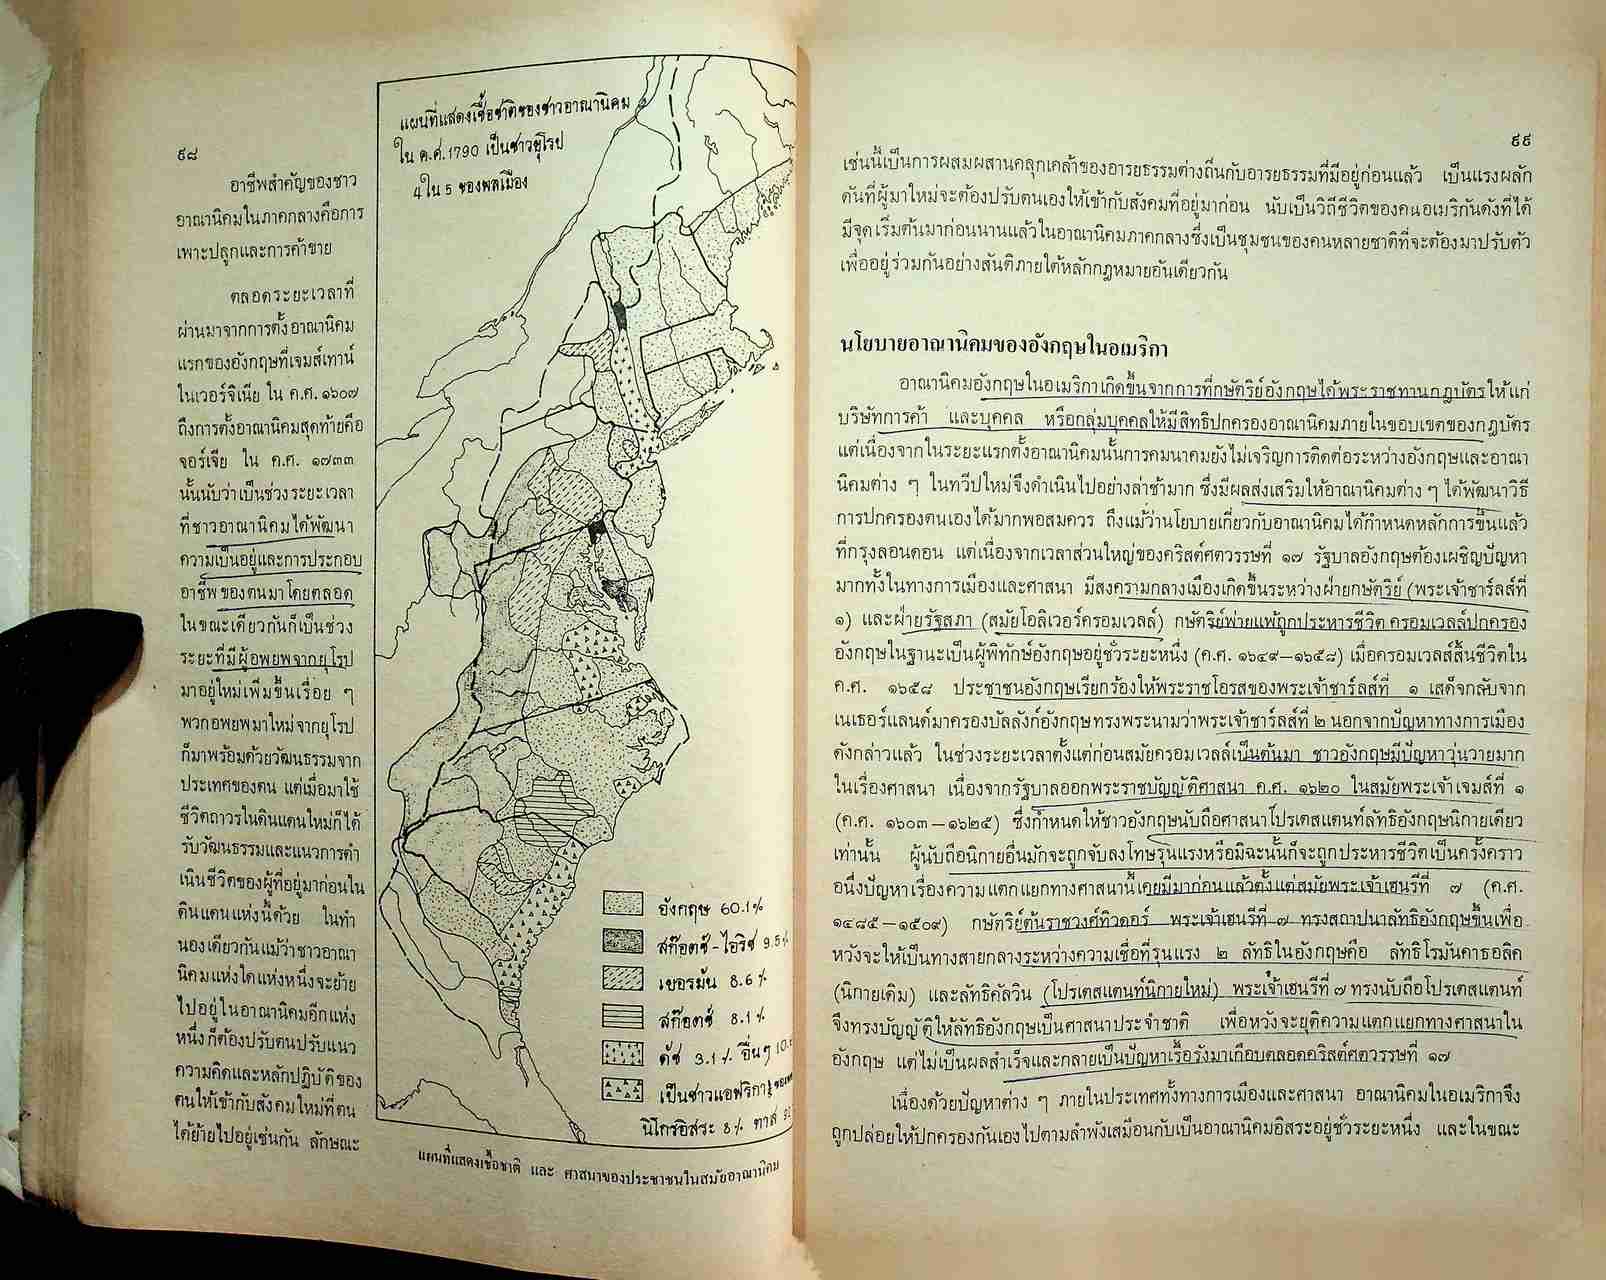 ๙๘
อาชีพสำคัญของชาว
อาณานิคมในภาคกลางคือการ
เพาะปลูกและการค้าขาย
ตลอดระยะเวลาที่
ผ่านมาจากการตั้งอาณานิคม
แรกของอังกฤษที่เจมส์เทาน์
ในเวอร์จิเนีย ใน ค.ศ. ๑๖๐๗
ถึงการตั้งอาณานิคมสุดท้ายคือ
จอร์เจีย ใน ค.ศ. ๑๗๓๓
นั้นนับว่าเป็นช่วงระยะเวลา
ที่ชาวอาณานิคมได้พัฒนา
ความเป็นอยู่และการประกอบ
อาชีพ ของตนมาโดยตลอด
ในขณะเดียวกันก็เป็นช่วง
ระยะที่มีผู้อพยพจากยุโรป
มาอยู่ใหม่เพิ่มขึ้นเรื่อย ๆ
พวกอพยพมาใหม่จากยุโรป
ก็มาพร้อมด้วยวัฒนธรรมจาก
ประเทศของตน แต่เมื่อมาใช้
ชีวิตถาวรในดินแดนใหม่ก็ได้
รับวัฒนธรรมและแนวการดำ
เนินชีวิตของผู้ที่อยู่มาก่อนใน
ดินแดนแห่งนี้ด้วย ในทำ
นองเดียวกันแม้ว่าชาวอาณา
นิคมแห่งใดแห่งหนึ่งจะย้าย
ไปอยู่ในอาณานิคมอีกแห่ง
หนึ่งก็ต้องปรับตนปรับแนว
ความคิดและหลักปฏิบัติของ
ตนให้เข้ากับสังคมใหม่ที่ตน
ได้ย้ายไปอยู่เช่นกัน ลักษณะ
แผนที่แสดงเชื้อชาติของชาวอาณานิคม
ใน ค.ศ.1790 เป็นชาวยุโรป
4 ใน 5 ของพลเมือง
อังกฤษ 60.1%
สก๊อตช์-ไอริช 9.5%
เยอรมัน 8.6%
สก๊อตช์ 8.1%
ดัช 3.1% อื่นๆ 10.
เป็นชาวแอฟริกา
นิโกรอิสระ 8% ทาส 92
แผนที่แสดงเชื้อชาติ และ ศาสนาของประชาชนในสมัยอาณานิคม
๙๙
เช่นนี้เป็นการผสมผสานคลุกเคล้าของอารยธรรมต่างถิ่นกับอารยธรรมที่มีอยู่ก่อนแล้ว เป็นแรงผลัก
ดันที่ผู้มาใหม่จะต้องปรับตนเองให้เข้ากับสังคมที่อยู่มาก่อน นับเป็นวิถีชีวิตของคนอเมริกันดังที่ได้
มีจุดเริ่มต้นมาก่อนนานแล้วในอาณานิคมภาคกลางซึ่งเป็นชุมชนของคนหลายชาติที่จะต้องมาปรับตัว
เพื่ออยู่ร่วมกันอย่างสันติภายใต้หลักกฎหมายอันเดียวกัน
นโยบายอาณานิคมของอังกฤษในอเมริกา
อาณานิคมอังกฤษในอเมริกาเกิดขึ้นจากการที่กษัตริย์อังกฤษได้พระราชทานกฎบัตรให้แก่
บริษัทการค้า และบุคคล หรือกลุ่มบุคคลให้มีสิทธิปกครองอาณานิคมภายในขอบเขตของกฎบัตร
แต่เนื่องจากในระยะแรกตั้งอาณานิคมนั้นการคมนาคมยังไม่เจริญการติดต่อระหว่างอังกฤษและอาณา
นิคมต่าง ๆ ในทวีปใหม่จึงดำเนินไปอย่างล่าช้ามาก ซึ่งมีผลส่งเสริมให้อาณานิคมต่าง ๆ ได้พัฒนาวิธี
การปกครองตนเองได้มากพอสมควร ถึงแม้ว่านโยบายเกี่ยวกับอาณานิคมได้กำหนดหลักการขึ้นแล้ว
ที่กรุงลอนดอน แต่เนื่องจากเวลาส่วนใหญ่ของคริสต์ศตวรรษที่ ๑๗ รัฐบาลอังกฤษต้องเผชิญปัญหา
มากทั้งในทางการเมืองและศาสนา มีสงครามกลางเมืองเกิดขึ้นระหว่างฝ่ายกษัตริย์ (พระเจ้าชาร์ลส์ที่
๑) และฝ่ายรัฐสภา (สมัยโอลิเวอร์ครอมเวลล์) กษัตริย์พ่ายแพ้ถูกประหารชีวิต ครอมเวลล์ปกครอง
อังกฤษในฐานะเป็นผู้พิทักษ์อังกฤษอยู่ชั่วระยะหนึ่ง (ค.ศ. ๑๖๔๙–๑๖๕๘) เมื่อครอมเวลส์สิ้นชีวิตใน
ค.ศ. ๑๖๕๘ ประชาชนอังกฤษเรียกร้องให้พระราชโอรสของพระเจ้าชาร์ลส์ที่ ๑ เสด็จกลับจาก
เนเธอร์แลนด์มาครองบัลลังก์อังกฤษทรงพระนามว่าพระเจ้าชาร์ลส์ที่ ๒ นอกจากปัญหาทางการเมือง
ดังกล่าวแล้ว ในช่วงระยะเวลาตั้งแต่ก่อนสมัยครอมเวลล์เป็นต้นมา ชาวอังกฤษมีปัญหาวุ่นวายมาก
ในเรื่องศาสนา เนื่องจากรัฐบาลออกพระราชบัญญัติศาสนา ค.ศ. ๑๖๒๐ ในสมัยพระเจ้าเจมส์ที่ ๑
(ค.ศ. ๑๖๐๓–๑๖๒๕) ซึ่งกำหนดให้ชาวอังกฤษนับถือศาสนาโปรเตสแตนท์ลัทธิอังกฤษนิกายเดียว
เท่านั้น ผู้นับถือนิกายอื่นมักจะถูกจับลงโทษรุนแรงหรือมิฉะนั้นก็จะถูกประหารชีวิตเป็นครั้งคราว
อนึ่งปัญหาเรื่องความแตกแยกทางศาสนานี้เคยมีมาก่อนแล้วตั้งแต่สมัยพระเจ้าเฮนรีที่ ๗ (ค.ศ.
๑๔๘๕–๑๕๐๙) กษัตริย์ต้นราชวงศ์ทิวดอร์ พระเจ้าเฮนรีที่ ๗ ทรงสถาปนาลัทธิอังกฤษขึ้นเพื่อ
หวังจะให้เป็นทางสายกลางระหว่างความเชื่อที่รุนแรง ๒ ลัทธิในอังกฤษคือ ลัทธิโรมันคาธอลิค
(นิกายเดิม) และลัทธิคัลวิน (โปรเตสแตนท์นิกายใหม่) พระเจ้าเฮนรีที่ ๗ ทรงนับถือโปรเตสแตนท์
จึงทรงบัญญัติให้ลัทธิอังกฤษเป็นศาสนาประจำชาติ เพื่อหวังจะยุติความแตกแยกทางศาสนาใน
อังกฤษ แต่ไม่เป็นผลสำเร็จและกลายเป็นปัญหาเรื้อรังมาเกือบตลอดคริสต์ศตวรรษที่ ๑๗
เนื่องด้วยปัญหาต่าง ๆ ภายในประเทศทั้งทางการเมืองและศาสนา อาณานิคมในอเมริกาจึง
ถูกปล่อยให้ปกครองกันเองไปตามลำพังเสมือนกับเป็นอาณานิคมอิสระอยู่ชั่วระยะหนึ่ง และในขณะ